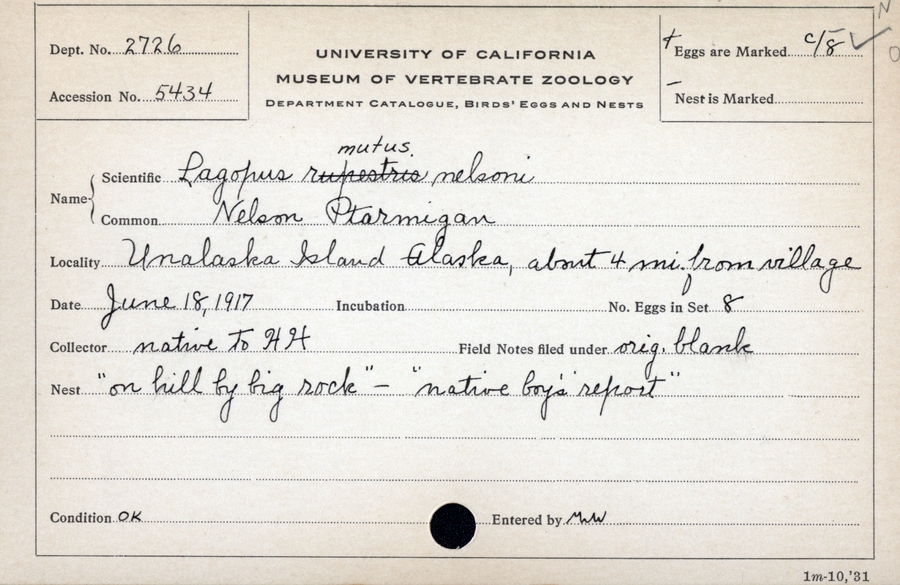 N
Dept. No. 2726
Accession No. 5434
UNIVERSITY OF CALIFORNIA
MUSEUM OF VERTEBRATE ZOOLOGY
DEPARTMENT CATALOGUE, BIRDS' EGGS AND NESTS
+ Eggs are Marked c/8 ✓
O
– Nest is Marked
mutus.
Name Scientific Lagopus rupestris nelsoni
Common Nelson Ptarmigan
Locality Unalaska Island Alaska, about 4 mi. from village
Date June 18, 1917 Incubation No. Eggs in Set 8
Collector native to HH Field Notes filed under orig. blank
Nest "on hill by big rock" – "native boy's report"
Condition OK Entered by
1m-10,'31